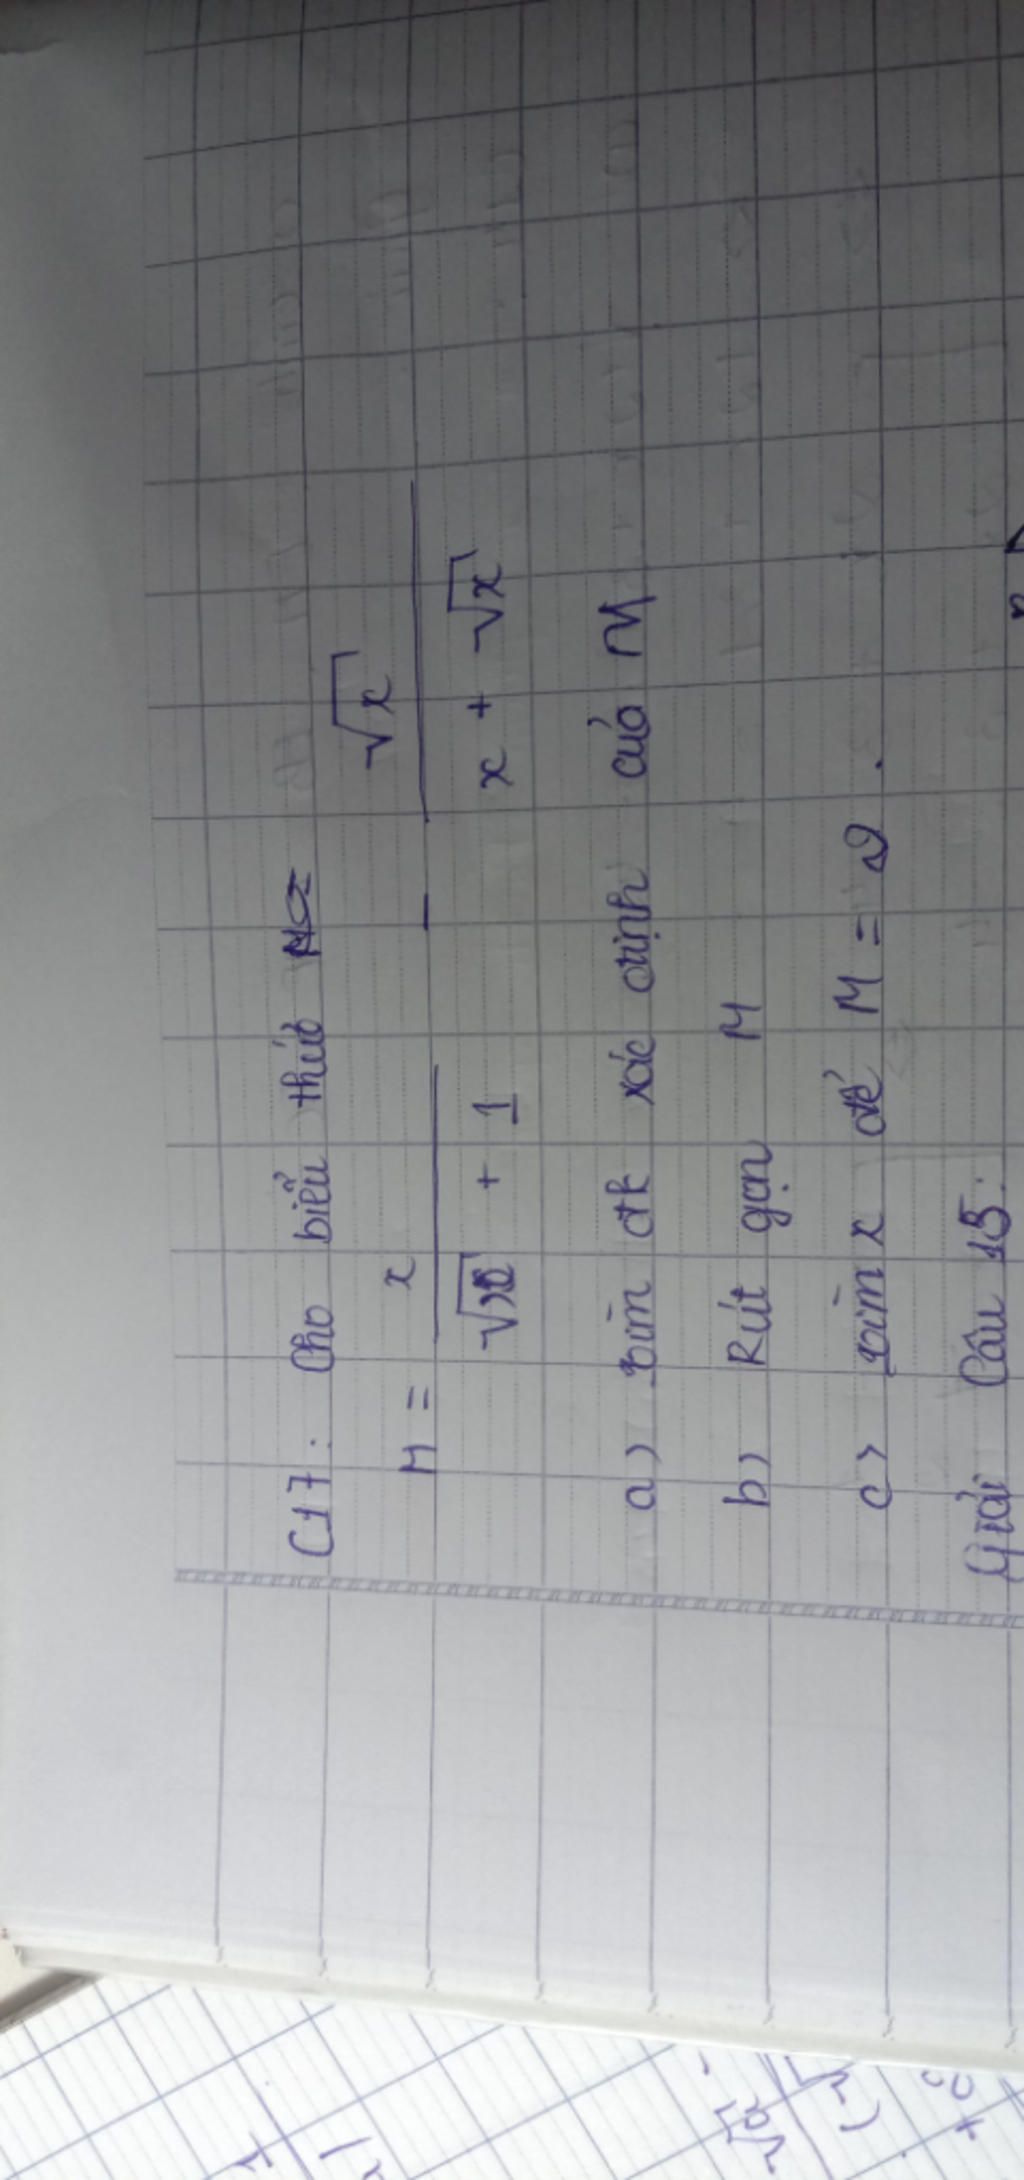 C17: Cho biểu thức
M = x / (√x + 1) - √x / (x + √x)
a) Tìm đk xác định của M
b) Rút gọn M
c) Tìm x để M = 2.
Giải Câu 15: